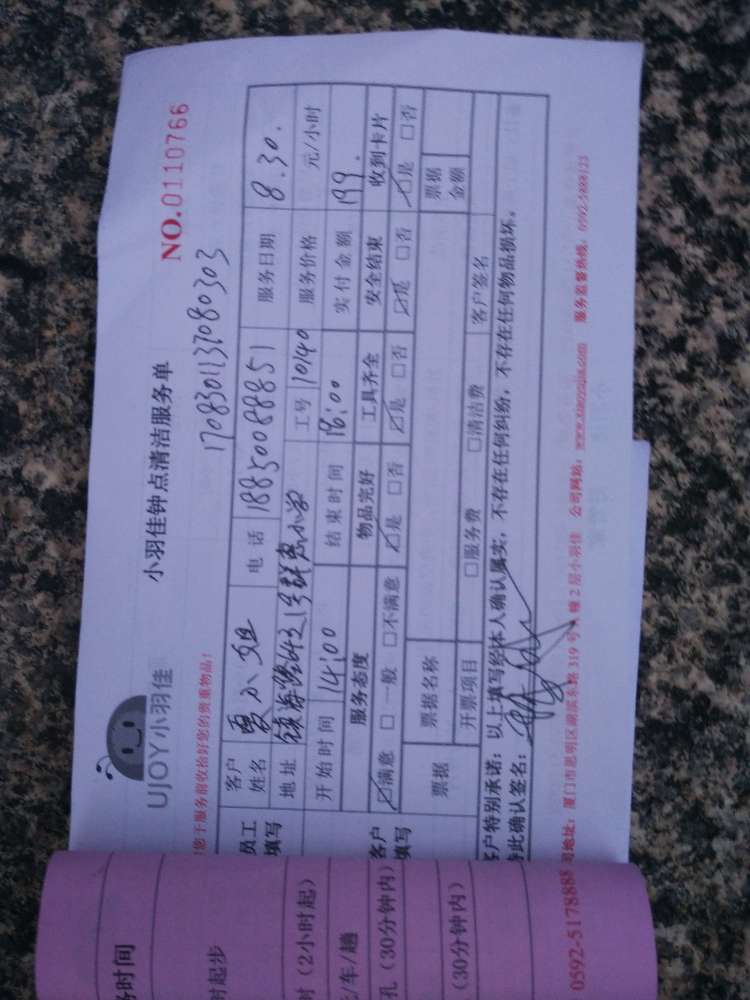 UJOY小羽佳
小羽佳钟点清洁服务单
NO.0110766
1708301137080303
您于服务前收拾好您的贵重物品!
员工填写
客户姓名 夏小姐 电话 18850088851 服务日期 8.30.
地址 工号 10140 服务价格 元/小时
开始时间 14:00 结束时间 16:00 实付金额 199.
客户填写
服务态度 物品完好 工具齐全 安全结束 收到卡片
☑满意 □一般 □不满意 ☑是 □否 ☑是 □否 ☑是 □否 ☑是 □否
票据 票据名称 票据金额
开票项目 □服务费 □清洁费 客户签名
客户特别承诺:以上填写经本人确认属实,不存在任何纠纷,不存在任何物品损坏。
特此确认签名:
司地址:厦门市思明区湖滨东路319号A幢2层小羽佳 公司网站:www.xiaoyujia.com 服务监督热线:0592-5888123
务时间
时起步
时(2小时起)
/车/趟
孔(30分钟内)
(30分钟内)
0592-5178888